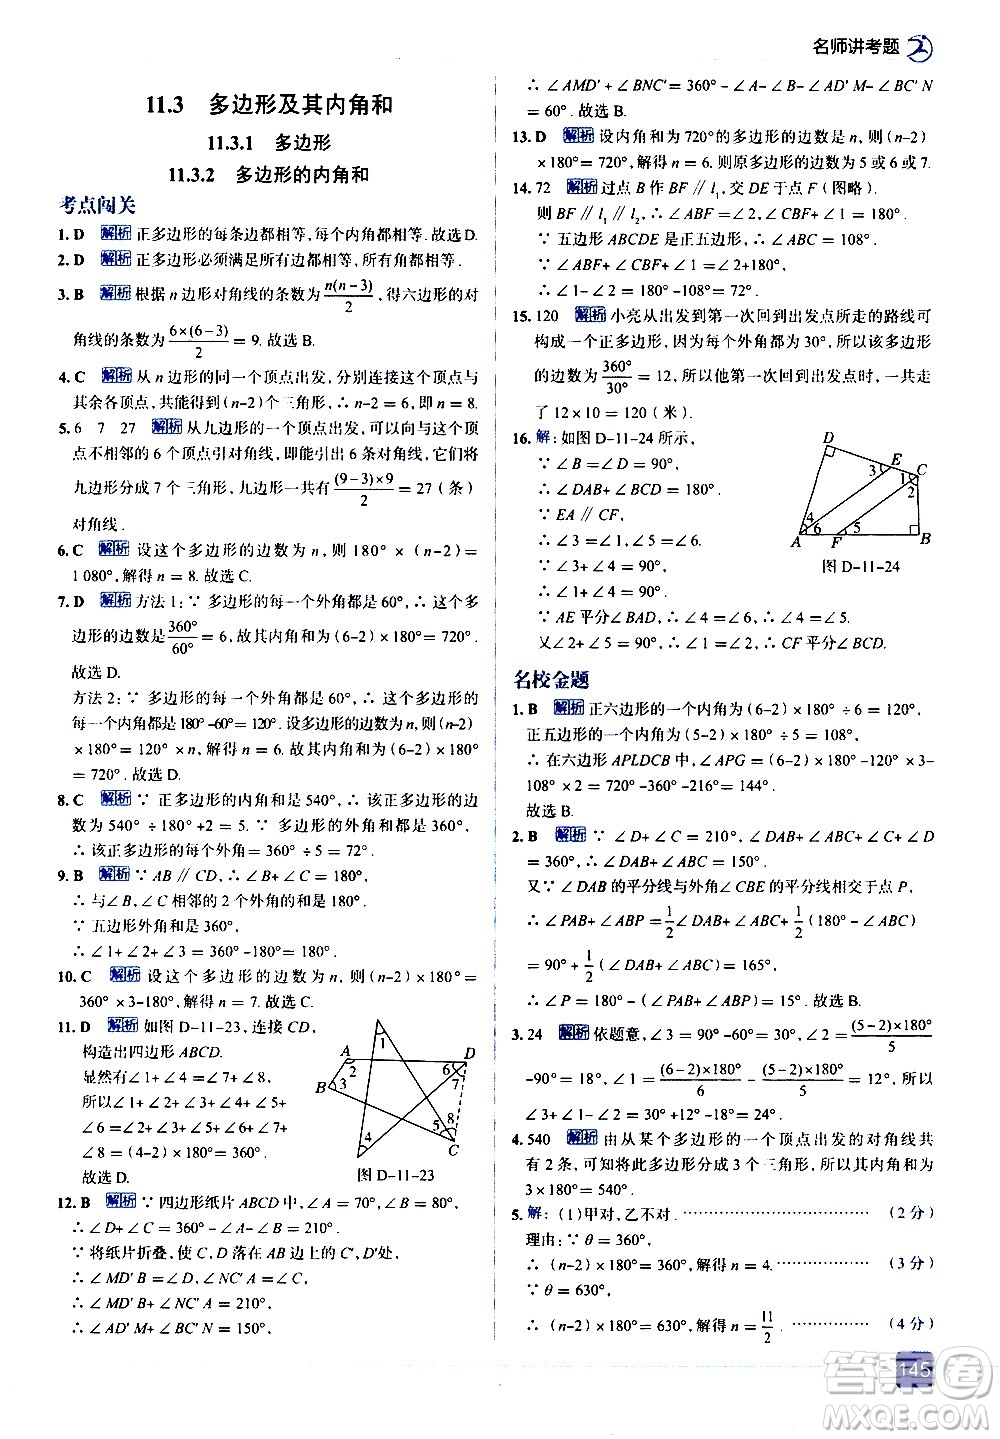 名师讲考题
11.3 多边形及其内角和
11.3.1 多边形
11.3.2 多边形的内角和
考点闯关
1. D 解析 正多边形的每条边都相等,每个内角都相等.故选D.
2. D 解析 正多边形必须满足所有边都相等,所有内角都相等.
3. B 解析 根据 n 边形对角线的条数为 n(n-3)/2 ,得六边形的对
角线的条数为 6×(6-3)/2 = 9. 故选 B.
4. C 解析 从 n 边形的同一个顶点出发,分别连接这个顶点与
其余各顶点,共能得到 (n-2) 个三角形,∴ n-2 = 6,即 n = 8.
5. 6 7 27 解析 从九边形的一个顶点出发,可以向与这个顶
点不相邻的 6 个顶点引对角线,即能引出 6 条对角线,它们将
九边形分成 7 个三角形,九边形一共有 (9-3)×9/2 = 27 (条)
对角线.
6. C 解析 设这个多边形的边数为 n,则 180° × (n-2) =
1 080°,解得 n = 8. 故选 C.
7. D 解析 方法 1:∵ 多边形的每一个外角都是 60°,∴ 这个多
边形的边数是 360°/60° = 6,故其内角和为 (6-2) ×180° = 720°.
故选 D.
方法 2:∵ 多边形的每一个外角都是 60°,∴ 这个多边形的
每一个内角都是 180° -60° = 120°. 设多边形的边数为 n,则 (n-2)
×180° = 120° ×n,解得 n = 6. 故其内角和为 (6-2) ×180°
= 720°. 故选 D.
8. C 解析 ∵ 正多边形的内角和是 540°,∴ 该正多边形的边
数为 540° ÷180° +2 = 5. ∵ 多边形的外角和都是 360°,
∴ 该正多边形的每个外角 = 360° ÷5 = 72°. 故选 C.
9. B 解析 ∵ AB ∥ CD,∴ ∠B+∠C = 180°,
∴ 与∠B,∠C 相邻的 2 个外角的和是 180°.
∵ 五边形外角和是 360°,
∴ ∠1+∠2+∠3 = 360° -180° = 180°. 故选 B.
10. C 解析 设这个多边形的边数为 n,则 (n-2) ×180° =
360° ×3-180°,解得 n = 7. 故选 C.
11. D 解析 如图 D-11-23,连接 CD,
构造出四边形 ABCD.
显然有∠1+∠4 = ∠7+∠8,
所以∠1+∠2+∠3+∠4+∠5+
∠6 = ∠2+∠3+∠5+∠6+∠7+
∠8 = (4-2) ×180° = 360°.
故选 D.
A
2
B
3
1
4
D
6
7
5
8
C
图 D-11-23
12. B 解析 ∵ 四边形纸片 ABCD 中,∠A = 70°,∠B = 80°,
∴ ∠D+∠C = 360° -∠A-∠B = 210°.
∵ 将纸片折叠,使点 C,D 落在 AB 边上的 C′,D′处,
∴ ∠MD′B = ∠D,∠NC′A = ∠C,
∴ ∠MD′B+∠NC′A = 210°,
∴ ∠AD′M+∠BC′N = 150°,
∴ ∠AMD′+∠BNC′ = 360° -∠A-∠B-∠AD′M-∠BC′N
= 60°. 故选 B.
13. D 解析 设内角和为 720°的多边形的边数是 n,则 (n-2)
×180° = 720°,解得 n = 6. 则原多边形的边数为 5 或 6 或 7.
14. 72 解析 过点 B 作 BF ∥ l₁,交 DE 于点 F (图略).
则 BF ∥ l₁ ∥ l₂,∴ ∠ABF = ∠2,∠CBF+∠1 = 180°.
∵ 五边形 ABCDE 是正五边形,∴ ∠ABC = 108°.
∴ ∠1-∠2 = 180° -∠CBF-∠ABF = 180° -∠ABC,
∴ ∠1-∠2 = 180° -108° = 72°.
15. 120 解析 小亮从出发到第一次回到出发点所走的路线可
构成一个正多边形,因为每个外角都为 30°,所以该多边形
的边数为 360°/30° = 12,所以他第一次回到出发点时,一共走
了 12×10 = 120 (米).
16. 解:如图 D-11-24 所示,
∵ ∠B = ∠D = 90°,
∴ ∠DAB+∠BCD = 180°.
∵ EA ∥ CF,
∴ ∠3 = ∠1,∠5 = ∠6.
∵ ∠3+∠4 = 90°,
∴ ∠1+∠4 = 90°.
∵ AE 平分∠BAD,∴ ∠4 = ∠6,∴ ∠4 = ∠5.
又∠2+∠5 = 90°,∴ ∠1 = ∠2,∴ CF 平分∠BCD.
D
E
3
C
1
2
4
6
5
A
F
B
图 D-11-24
名校金题
1. B 解析 正六边形的一个内角为 (6-2) ×180° ÷6 = 120°,
正五边形的一个内角为 (5-2) ×180° ÷5 = 108°,
∴ 在六边形 APLDCB 中,∠APG = (6-2) ×180° -120° ×3-
108° ×2 = 720° -360° -216° = 144°.
故选 B.
2. B 解析 ∵ ∠D+∠C = 210°,∠DAB+∠ABC+∠C+∠D
= 360°,∴ ∠DAB+∠ABC = 150°.
又∵ ∠DAB 的平分线与外角∠CBE 的平分线相交于点 P,
∴ ∠PAB+∠ABP = 1/2∠DAB+∠ABC+1/2(180° -∠ABC)
= 90° + 1/2(∠DAB+∠ABC) = 165°,
∴ ∠P = 180° - (∠PAB+∠ABP) = 15°. 故选 B.
3. 24 解析 依题意,∠3 = 90° -60° = 30°,∠2 = (5-2)×180°/5
-90° = 18°,∠1 = (6-2)×180°/6 - (5-2)×180°/5 = 12°,所以
∠3+∠1-∠2 = 30° +12° -18° = 24°.
4. 540 解析 由从某个多边形的一个顶点出发的对角线共
有 2 条,可知将此多边形分成 3 个三角形,所以其内角和为
3×180° = 540°.
5. 解:(1)甲对,乙不对. ………………………… (2 分)
理由:∵ θ = 360°,
∴ (n-2) ×180° = 360°,解得 n = 4. …………… (3 分)
∵ θ = 630°,
∴ (n-2) ×180° = 630°,解得 n = 11/2. ………… (4 分)
145
答案圈
MXQE.COM